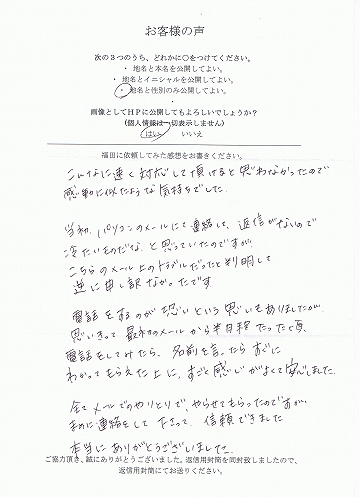 お客様の声
次の３つのうち、どれかに○をつけてください。
・ 地名と本名を公開してよい。
・ 地名とイニシャルを公開してよい。
・ 地名と性別のみ公開してよい。
画像としてＨＰに公開してもよろしいでしょうか？
（個人情報は一切表示しません）
はい　いいえ
福田に依頼してみた感想をお書きください。
こんなに速く対応して頂けると思わなかったので
感動に似たような気持ちでした。
当初、パソコンのメールにて連絡し、返信がないので
冷たいものだな、と思っていたのですが、
こちらのメール上のトラブルだったと判明して
逆に申し訳なかったです
電話をするのが恐いという思いもありましたが、
思いきって最初のメールから半日程たった頃、
電話をしてみたら、名前を言ったらすぐに
わかってもらえた上に、すごく感じがよくて安心しました。
全てメールでのやりとりで、やらせてもらったのですが、
まめに連絡をして下さって、信頼できました
本当にありがとうございました。
ご協力頂き、誠にありがとうございました。返信用封筒を同封致しましたので、
返信用封筒にてお送りください。